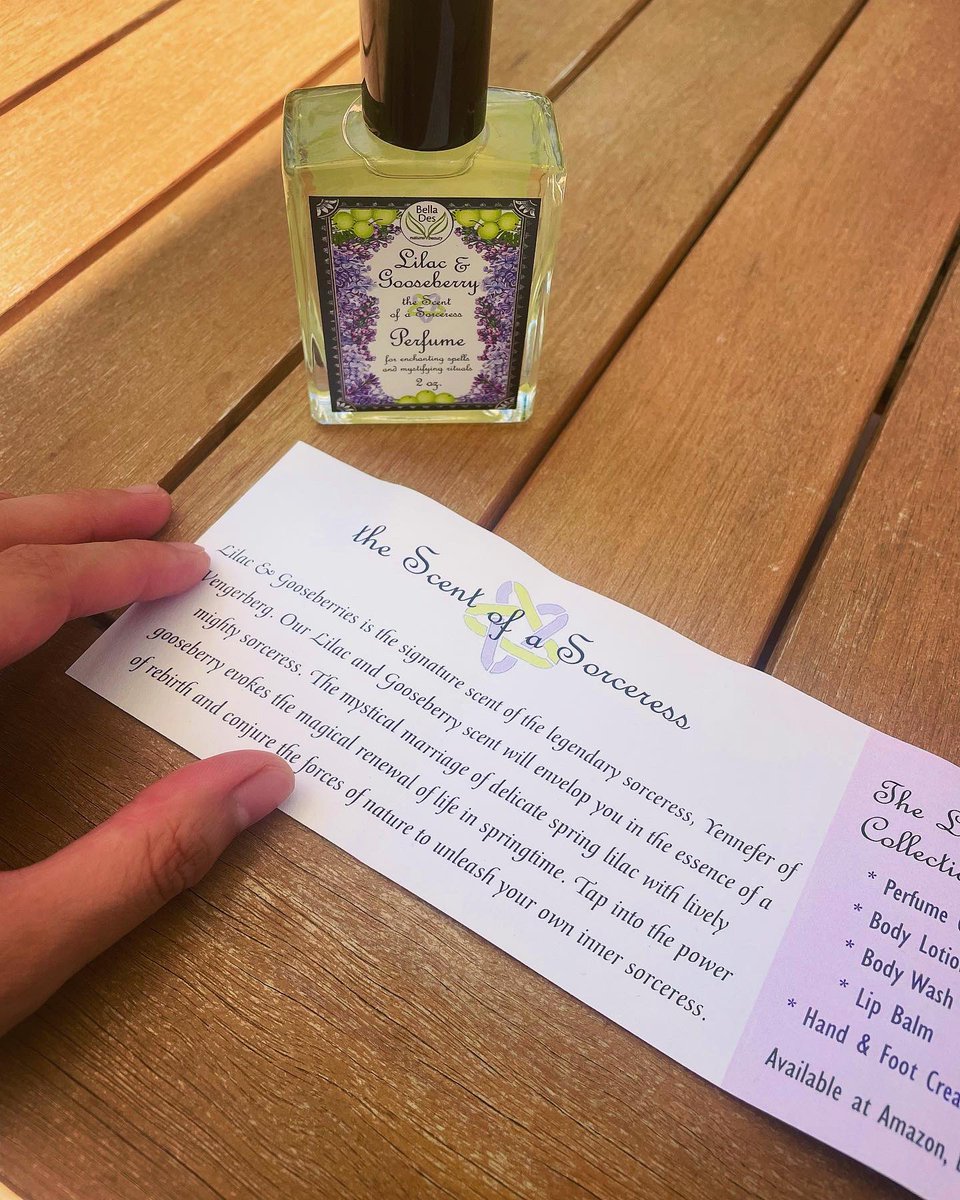 Bella
Des
natural beauty
Lilac &
Gooseberry
the Scent
of a Sorceress
Perfume
for enchanting spells
and mystifying rituals
2 oz.
the Scent of a Sorceress
Lilac & Gooseberries is the signature scent of the legendary sorceress, Yennefer of
Vengerberg. Our Lilac and Gooseberry scent will envelop you in the essence of a
mighty sorceress. The mystical marriage of delicate spring lilac with lively
gooseberry evokes the magical renewal of life in springtime. Tap into the power
of rebirth and conjure the forces of nature to unleash your own inner sorceress.
The L
Collectio
* Perfume
* Body Lotio
* Body Wash
* Lip Balm
* Hand & Foot Crea
Available at Amazon,